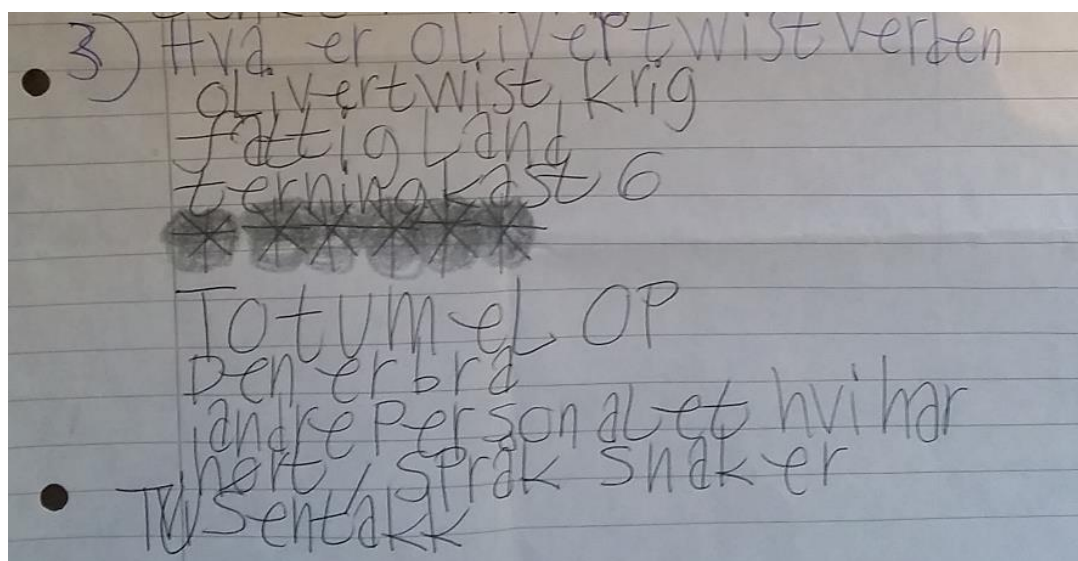 3) Hva er oLivertwist verden
oLivertwist, krig
fattig Land
terningkast 6
Totum eL OP
Den er bra
andre Personalet hvi har
hørt, språk snaker
TUsentakk